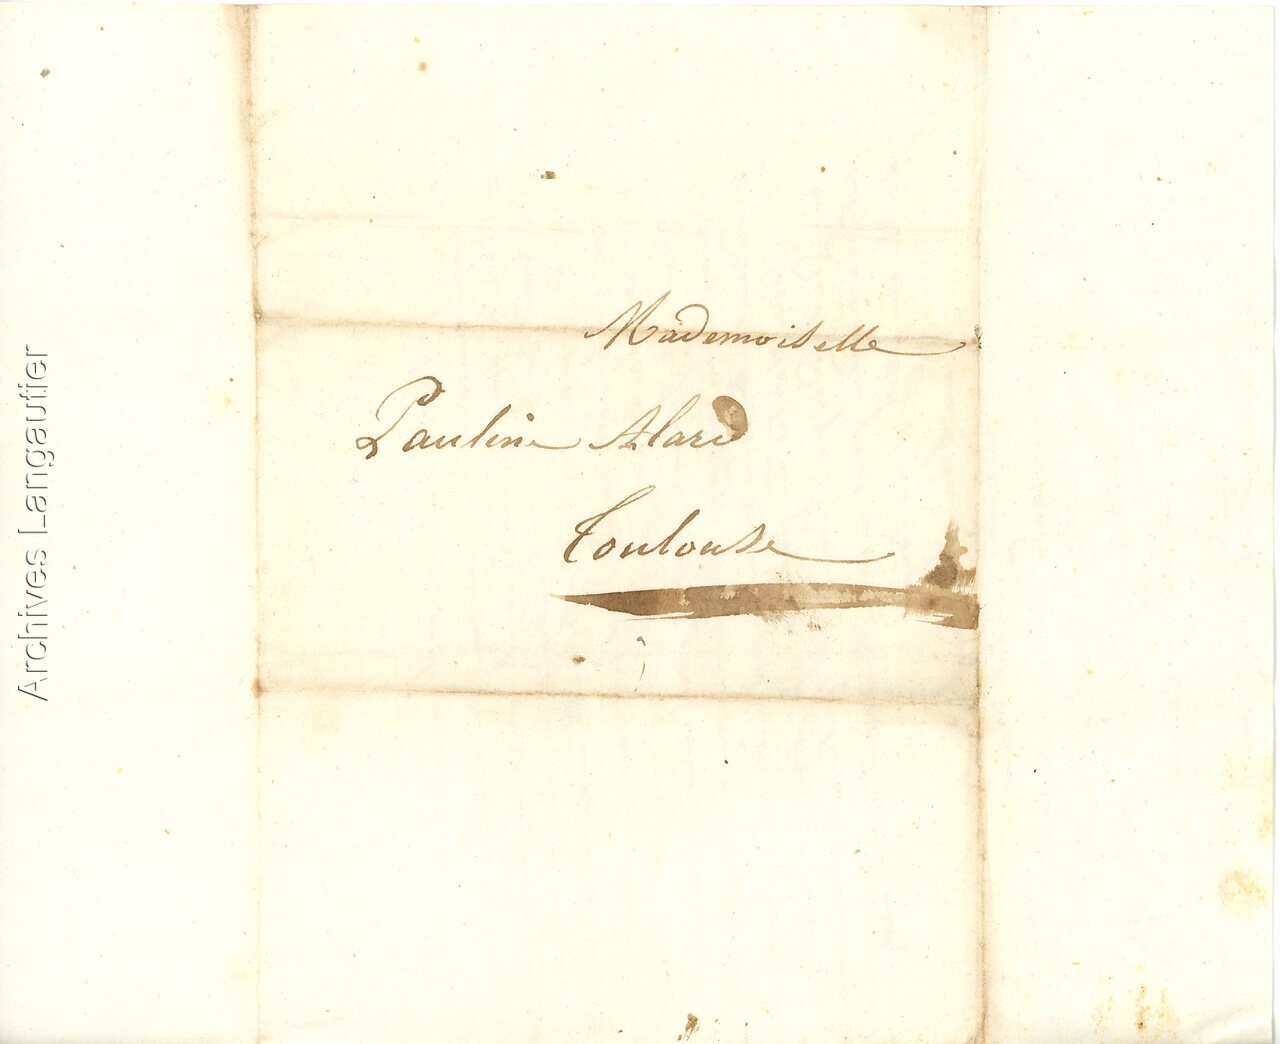 Mademoiselle
Pauline Alard
Toulouse
Archives Langautier